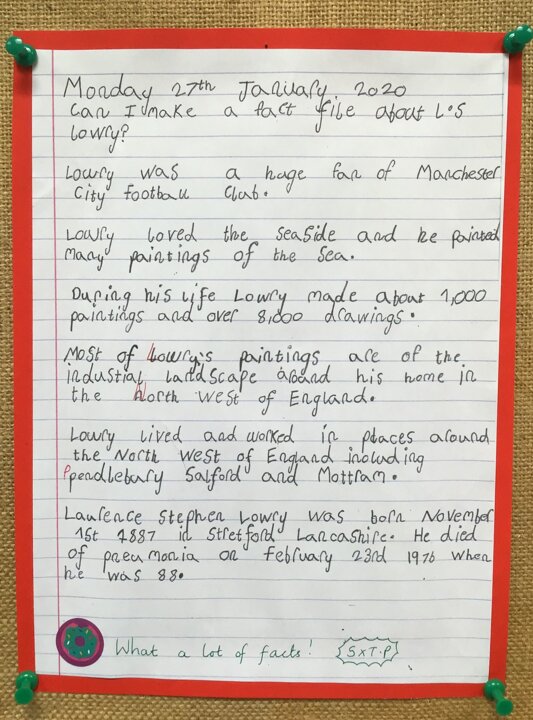 Monday 27th January 2020
Can I make a fact file about L.S
Lowry?
Lowry was a huge fan of Manchester
City football Club.
Lowry loved the seaside and he painted
many paintings of the sea.
During his life Lowry made about 1,000
paintings and over 8,000 drawings.
Most of Lowry's paintings are of the
industrial landscape around his home in
the North West of England.
Lowry lived and worked in places around
the North West of England including
Ppendlebury Salford and Mottram.
Laurence Stephen Lowry was born November
1st 1887 in Stretford Lancashire. He died
of pneumonia on February 23rd 1976 when
he was 88.
What a lot of facts! 5xT.P